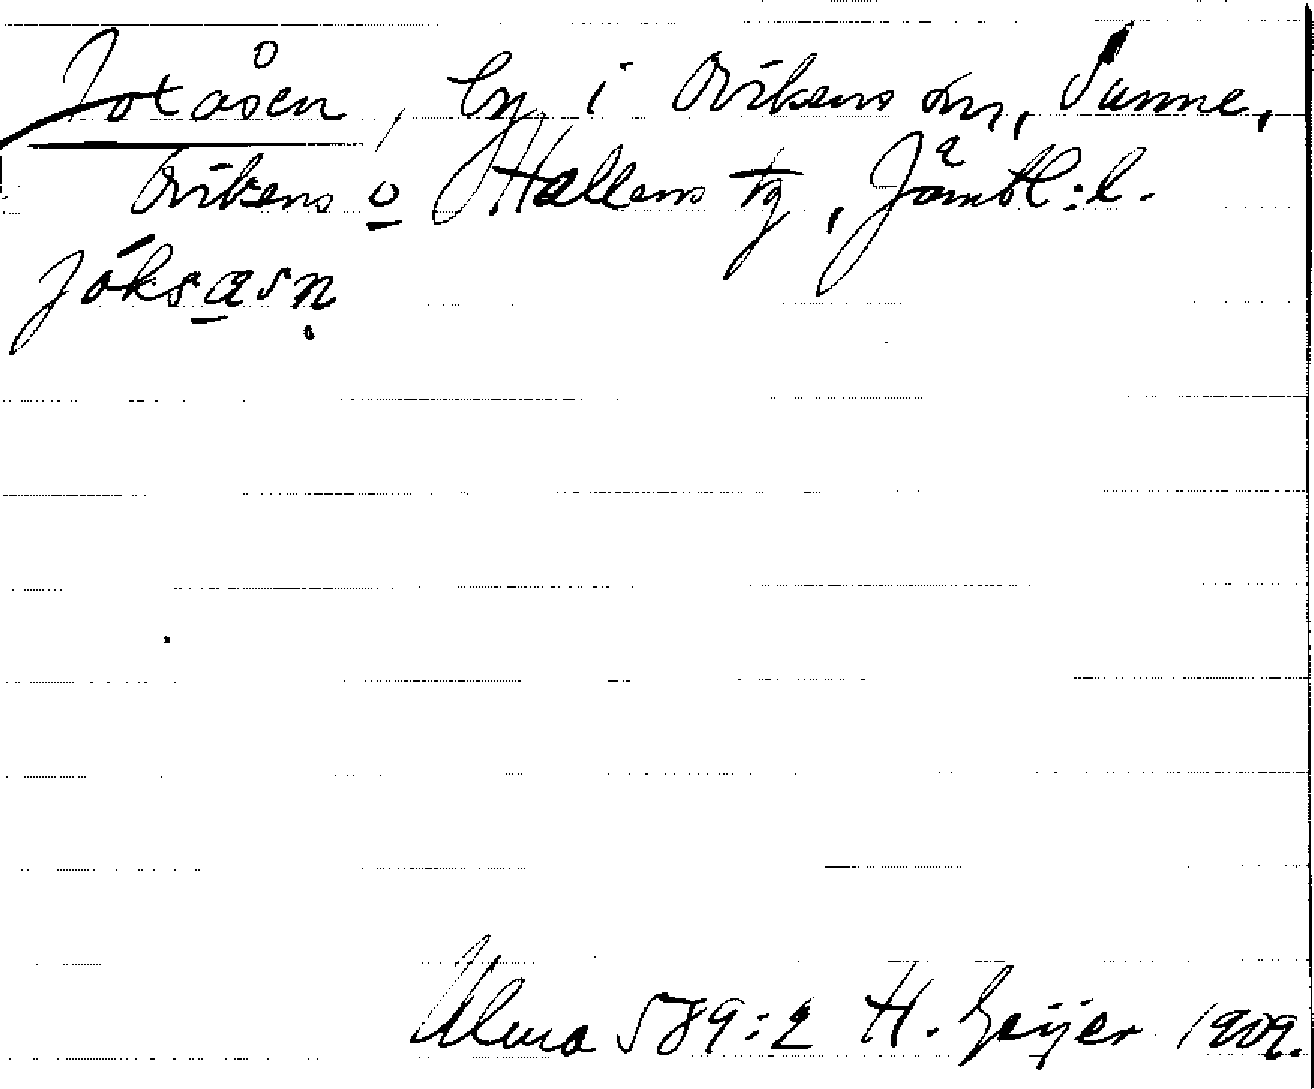 Jotåsen, by i Ovikens sn, Sunne,
Ovikens o Hallens tg, Jämtl:l.
jóksasṇ
Ulma 589:2 H. Geijer 1909.